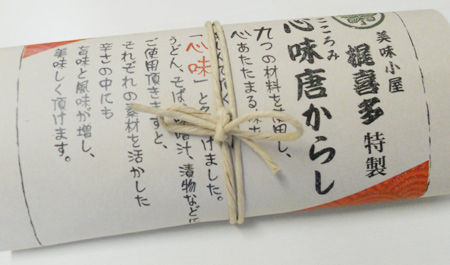 美味小屋
梶喜多 特製
こころみ
心味唐からし
九つの材料を
心あたたまる
「心味」と
けました。
うどん、そば、味噌汁、漬物などに
ご使用頂きますと、
それぞれの素材を活かした
辛さの中にも
旨味と風味が増し、
美味しく頂けます。